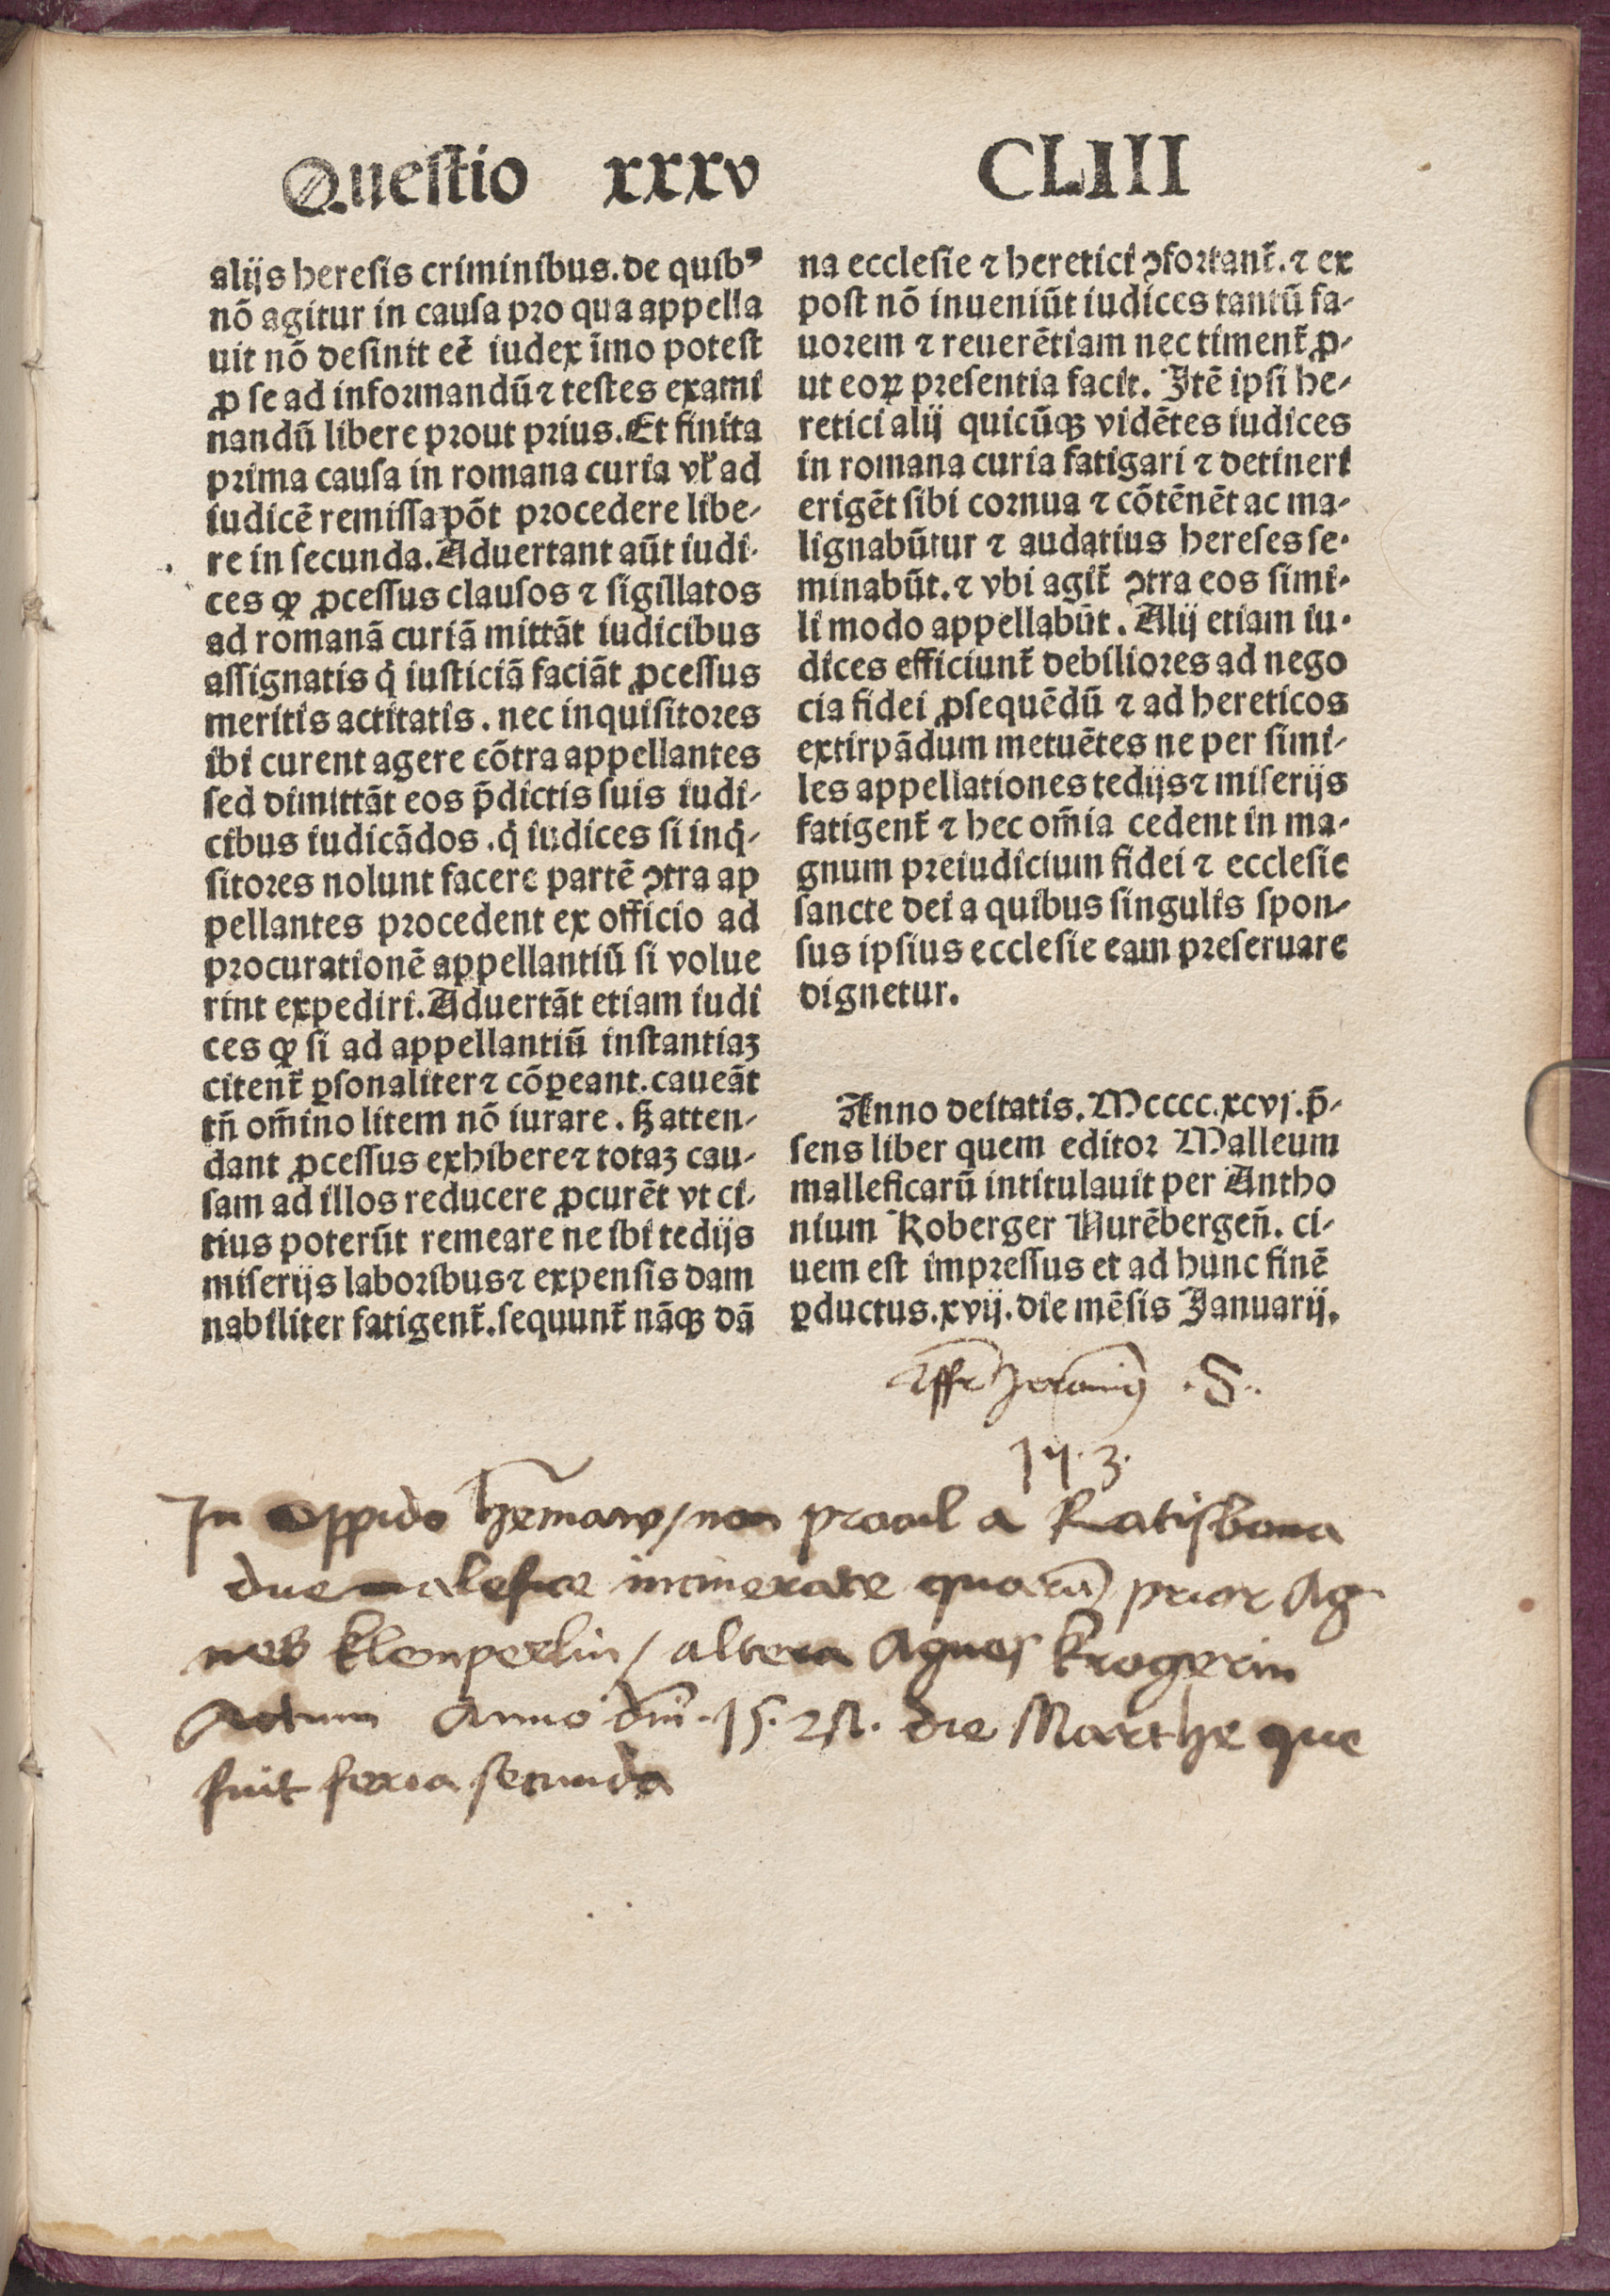 Questio xxxv
CLIII
alijs heresis criminibus.de quibꝰ
nō agitur in causa pro qua appella
uit nō desinit eē iudex īmo potest
ꝓ se ad informandū ⁊ testes exami
nandū libere prout prius.Et finita
prima causa in romana curia vľ ad
iudicē remissa pōt procedere libe-
re in secunda.Aduertant aūt iudi-
ces ꝙ ꝓcessus clausos ⁊ sigillatos
ad romanā curiā mittāt iudicibus
assignatis q̇ iusticiā faciāt ꝓcessus
meritis actitatis. nec inquisitores
ibi curent agere cōtra appellantes
sed dimittāt eos p̄dictis suis iudi-
cibus iudicādos .q̇ iudices si inq̇-
sitores nolunt facere partē ↄtra ap
pellantes procedent ex officio ad
procurationē appellantiū si volue
rint expediri.Aduertāt etiam iudi
ces ꝙ si ad appellantiū instantiaꝫ
citent᷑ ꝑsonaliter ⁊ cōꝑeant.caueāt
tn̄ om̄ino litem nō iurare. ꝫ atten-
dant ꝓcessus exhibere ⁊ totaꝫ cau-
sam ad illos reducere ꝓcurēt vt ci-
tius poterūt remeare ne ibi tedijs
miserijs laboribus ⁊ expensis dam
nabiliter fatigent᷑.sequunt᷑ nāꝙ dā
na ecclesie ⁊ heretici ↄfortant᷑.⁊ ex
post nō inueniūt iudices tantū fa-
uorem ⁊ reuerētiam nec timent᷑ ꝓ-
ut eoꝝ presentia facit. Itē ipsi he-
retici alij quicūꝙ vidētes iudices
in romana curia fatigari ⁊ detineri
erigēt sibi cornua ⁊ cōtēnēt ac ma-
lignabūtur ⁊ audatius hereses se-
minabūt.⁊ vbi agit᷑ ↄtra eos simi-
li modo appellabūt. Alij etiam iu-
dices efficiunt᷑ debiliores ad nego
cia fidei ꝓsequēdū ⁊ ad hereticos
extirpādum metuētes ne per simi-
les appellationes tedijs ⁊ miserijs
fatigent᷑ ⁊ hec om̄ia cedent in ma-
gnum preiudicium fidei ⁊ ecclesie
sancte dei a quibus singulis spon-
sus ipsius ecclesie eam preseruare
dignetur.
Anno deitatis. Mcccc.xcvj.p̄-
sens liber quem editor Malleum
malleficarū intitulauit per Antho
nium Koberger Nurēbergen̄. ci-
uem est impressus et ad hunc finē
ꝑductus.xvij.die mēsis Januarij.
.S.
In oppido hemaw / non procul a Ratisbona
due malefice incinerate quarū prior Ag
nes klomperlin / altera Agnes krogerin
Actum Anno dni . 15. 2 die Marthe que
fuit feria secunda